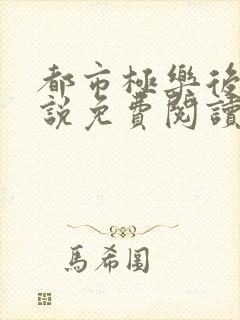 都市極樂後
說免費閱讀
馬希圖